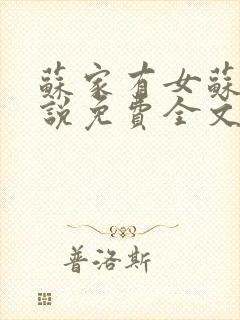 蘇家有女蘇
說免費全文
普洛斯